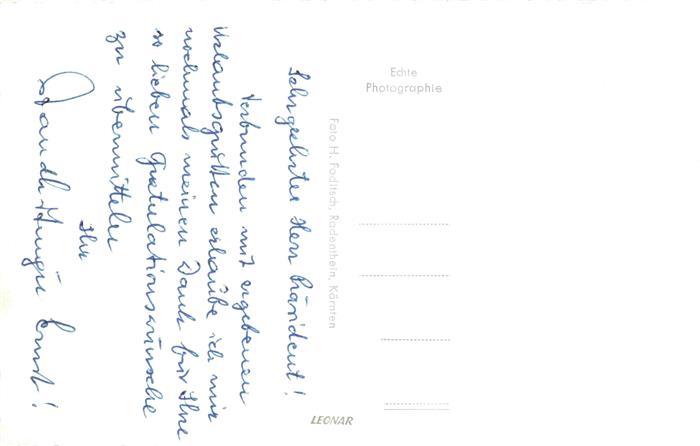 Sehrgeehrter Herr Präsident!
Verbunden mit ergebenen
Urlaubsgrüßen erlaube ich mir
nochmals meinen Dank für Ihre
so lieben Gratulationswünsche
zu übermitteln
Ihr
Ernst!
Echte
Photographie
Foto H. Foditsch, Radenthein, Kärnten
LEONAR